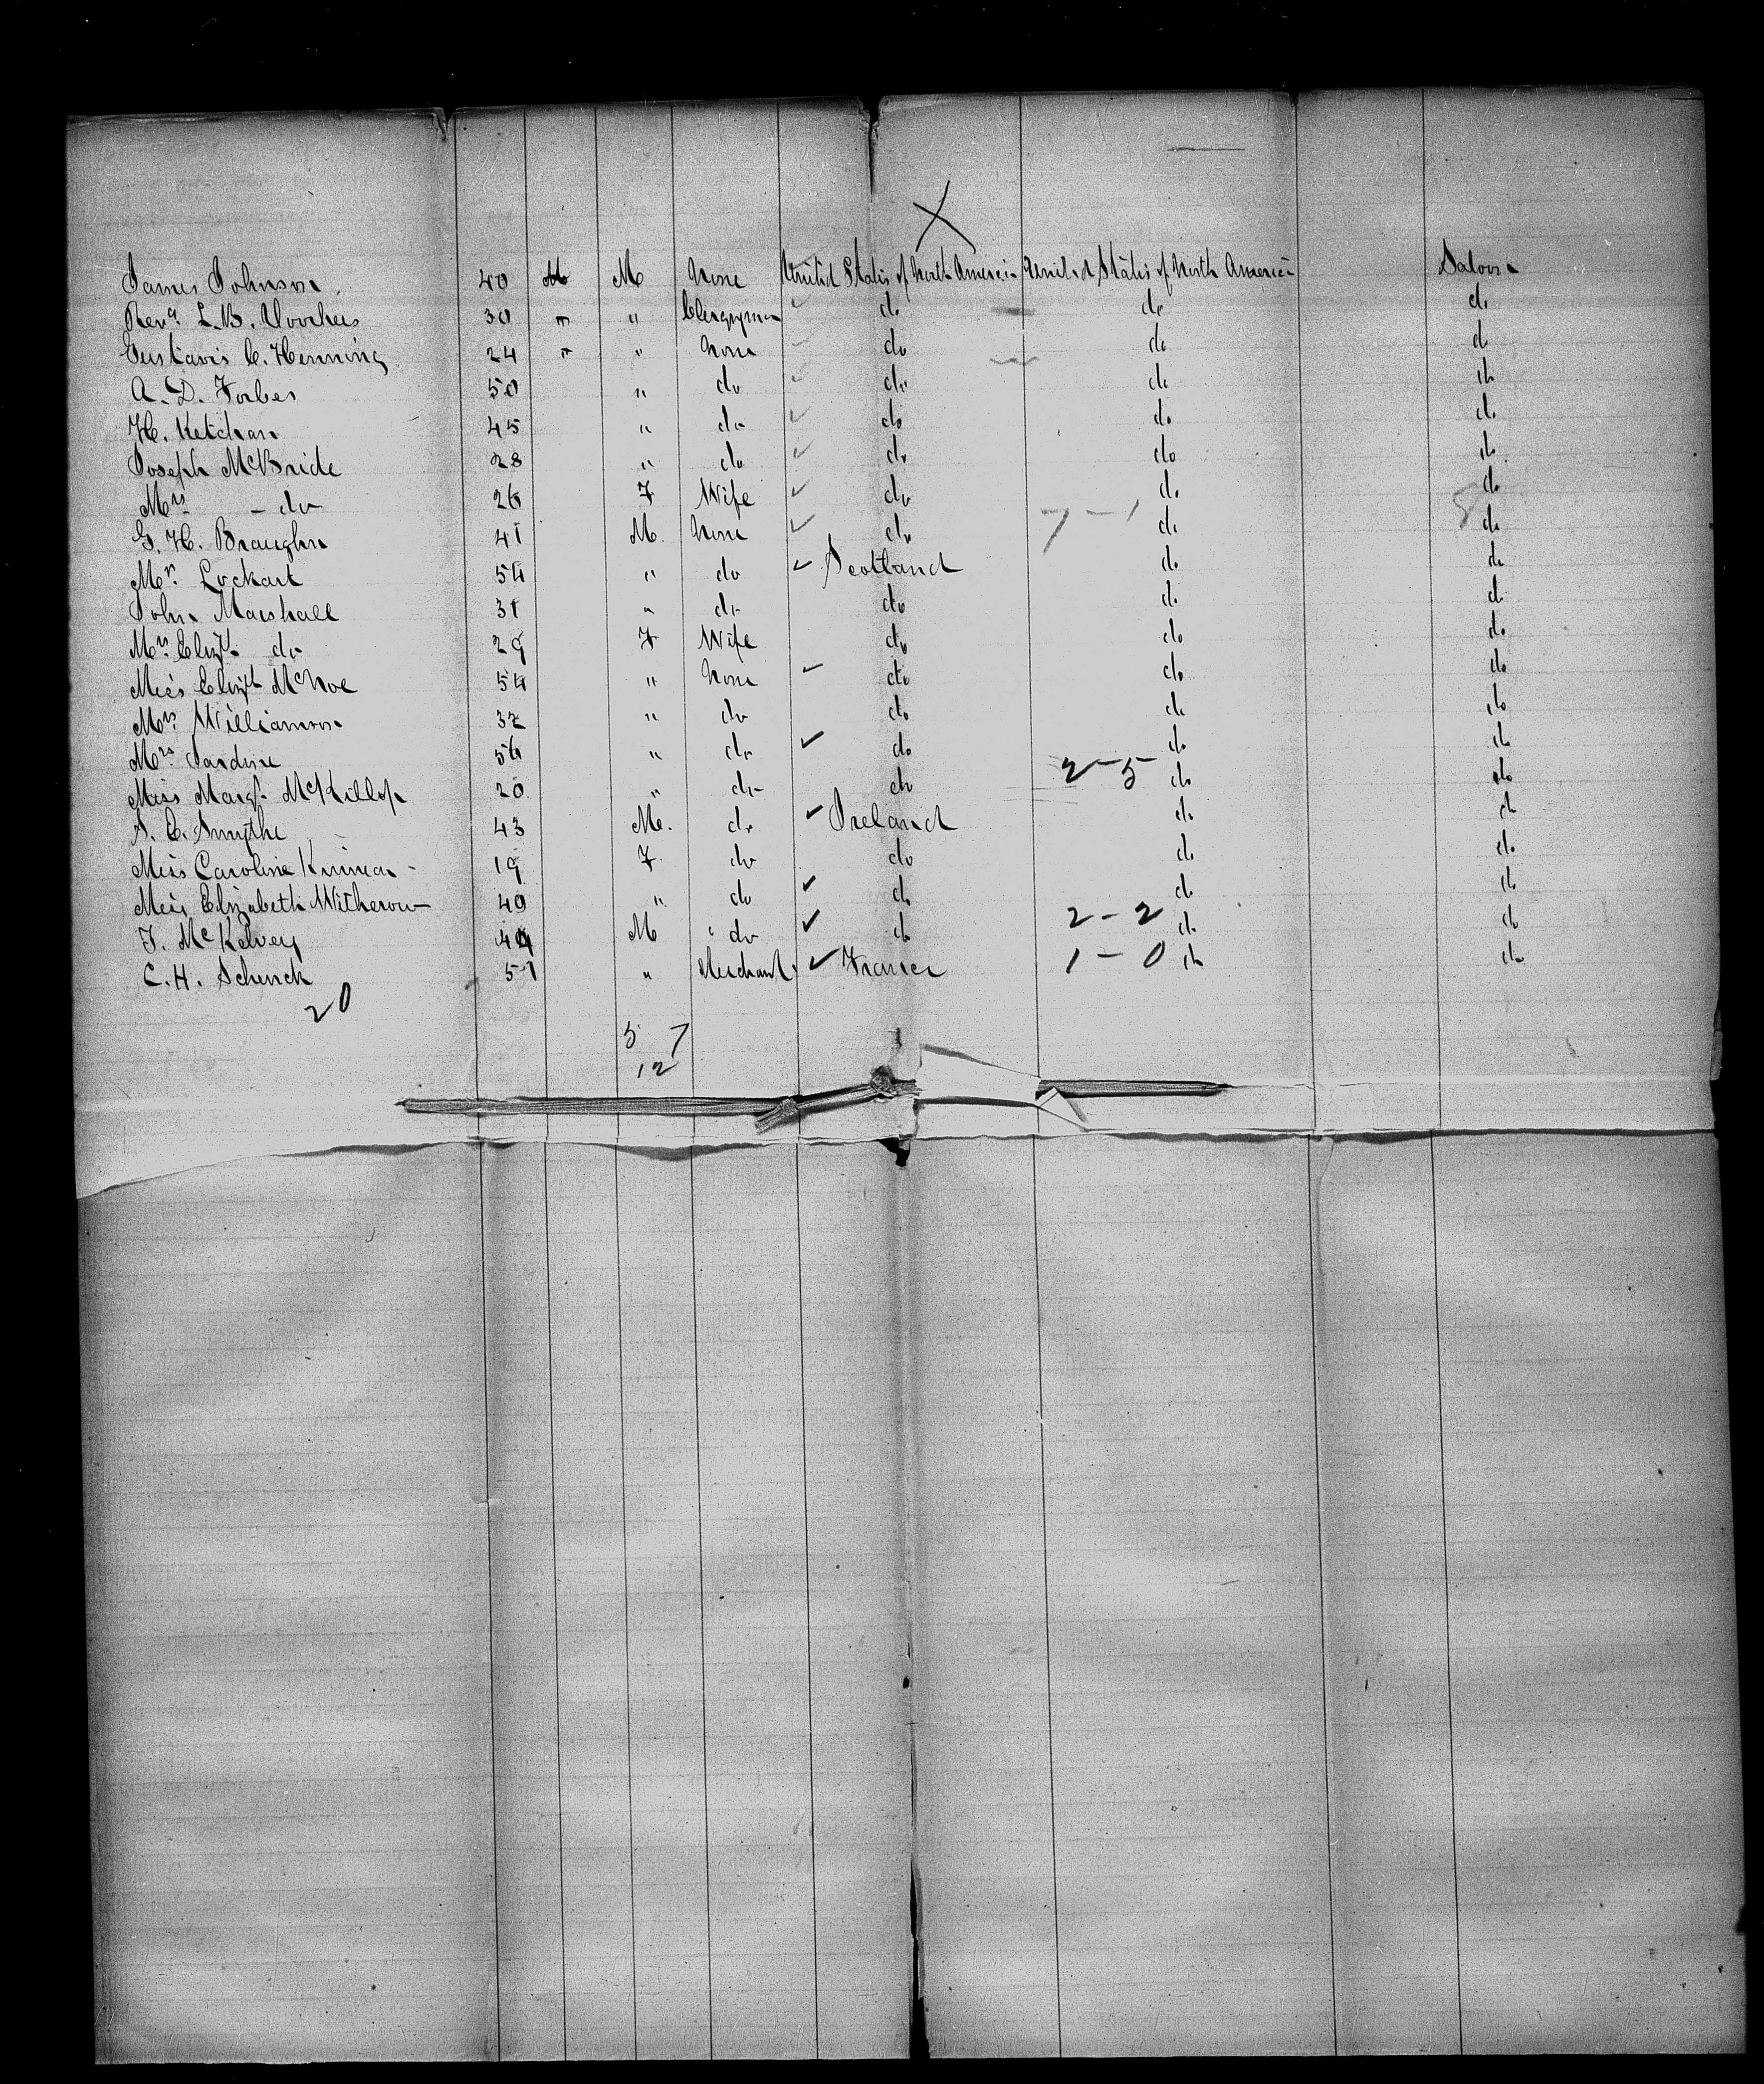 X
James Johnson 40 M M None United States of North America United States of North America Saloon
Revd. L. B. Voorhees 30 " " Clergyman do do do
Gustavis C. Henning 24 " " None do do do
A. D. Forbes 50 " do do do do
H. Ketchan 45 " do do do do
Joseph McBride 28 " do do do do
Mrs - do 26 F Wife do do do
G. H. Braughn 41 M. None do 7 - 1 do 8 do
Mr. Lockart 54 " do Scotland do do
John Marshall 31 " do do do do
Mrs Elizth do 29 F Wife do do do
Miss Elizth McNoe 54 " None do do do
Mrs Williamson 32 " do do do do
Mrs Jardine 56 " do do do do
Miss Margt. McKillop 20 " do do 2 - 5 do do
S. C. Smythe 43 M. do Ireland do do
Miss Caroline 19 F. do do do do
Miss Elizabeth Witherow 40 " do do do do
J. McKelvey 44 M " do do 2 - 2 do do
C. H. Schenck 51 " Merchant France 1 - 0 do do
20
5 7
12